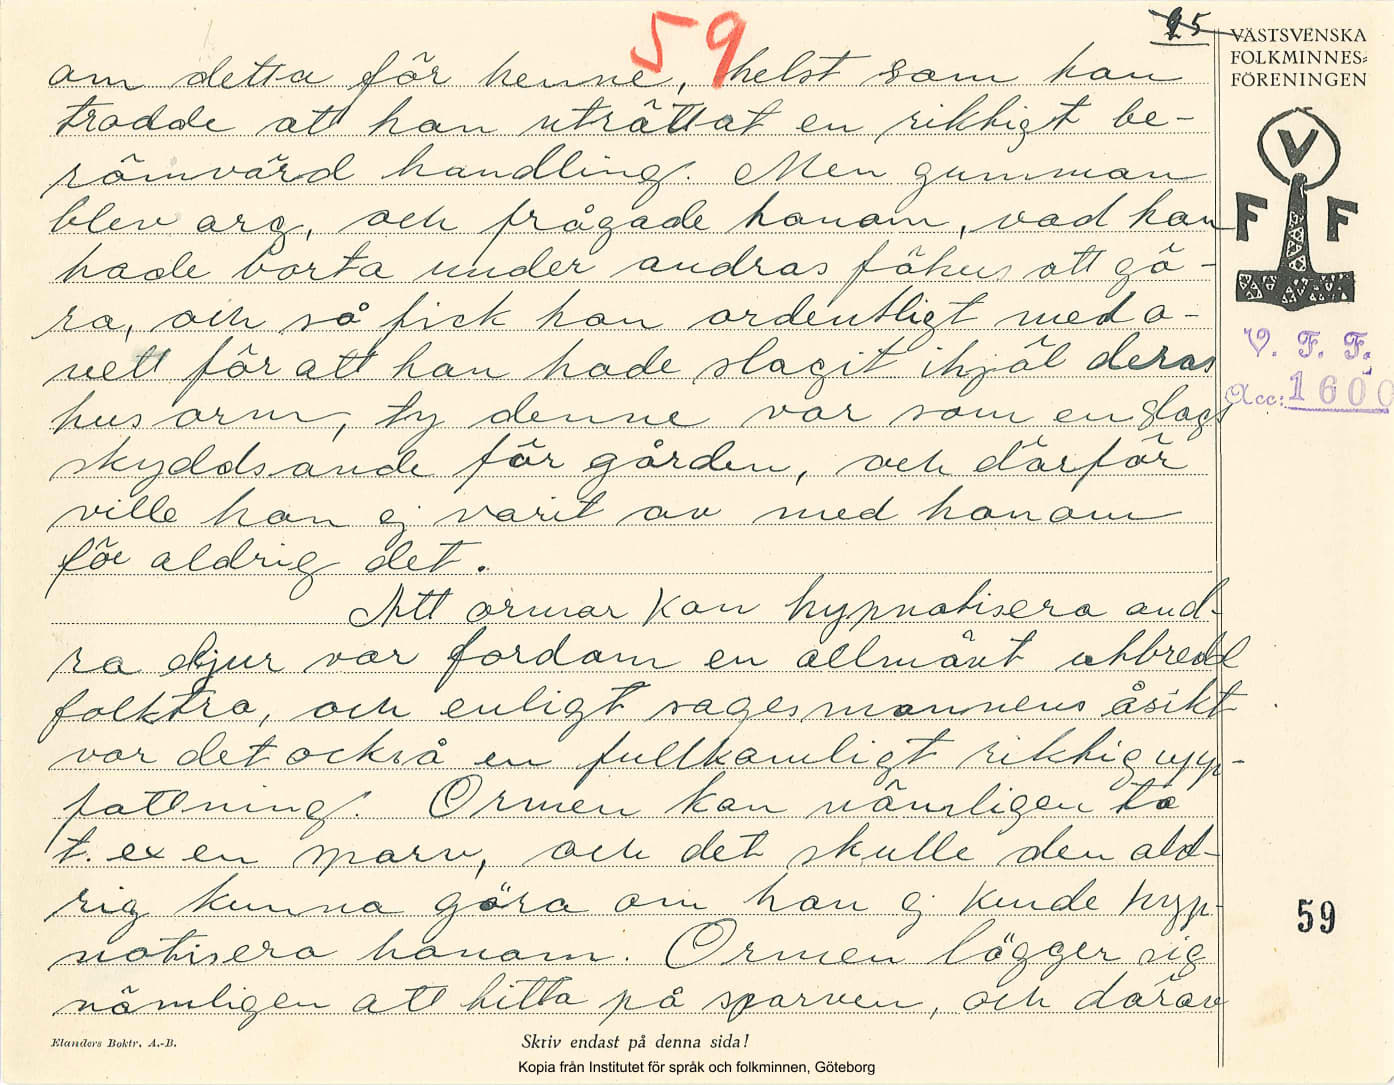 59
25
VÄSTSVENSKA
FOLKMINNES-
FÖRENINGEN
V
F F
V. F. F.
Acc: 1600
om detta för henne, helst som han
trodde att han uträttat en riktigt be-
römvärd handling. Men gumman
blev arg, och frågade honom, vad han
hade borta under andras fähus att gö-
ra, och så fick han ordentligt med o-
vett för att han hade slagit ihjäl deras
husorm, ty denne var som en slags
skyddsande för gården, och därför
ville han ej varit av med honom
för aldrig det.
Att ormar kan hypnotisera and-
ra djur var fordom en allmänt utbredd
folktro, och enligt sagesmannens åsikt
var det också en fullkomligt riktig upp-
fattning. Ormen kan nämligen ta
t. ex en sparv, och det skulle den ald-
rig kunna göra om han ej kunde hyp-
notisera honom. Ormen lägger sig
nämligen att hitta på sparven, och därav
59
Elanders Boktr. A.-B.
Skriv endast på denna sida!
Kopia från Institutet för språk och folkminnen, Göteborg